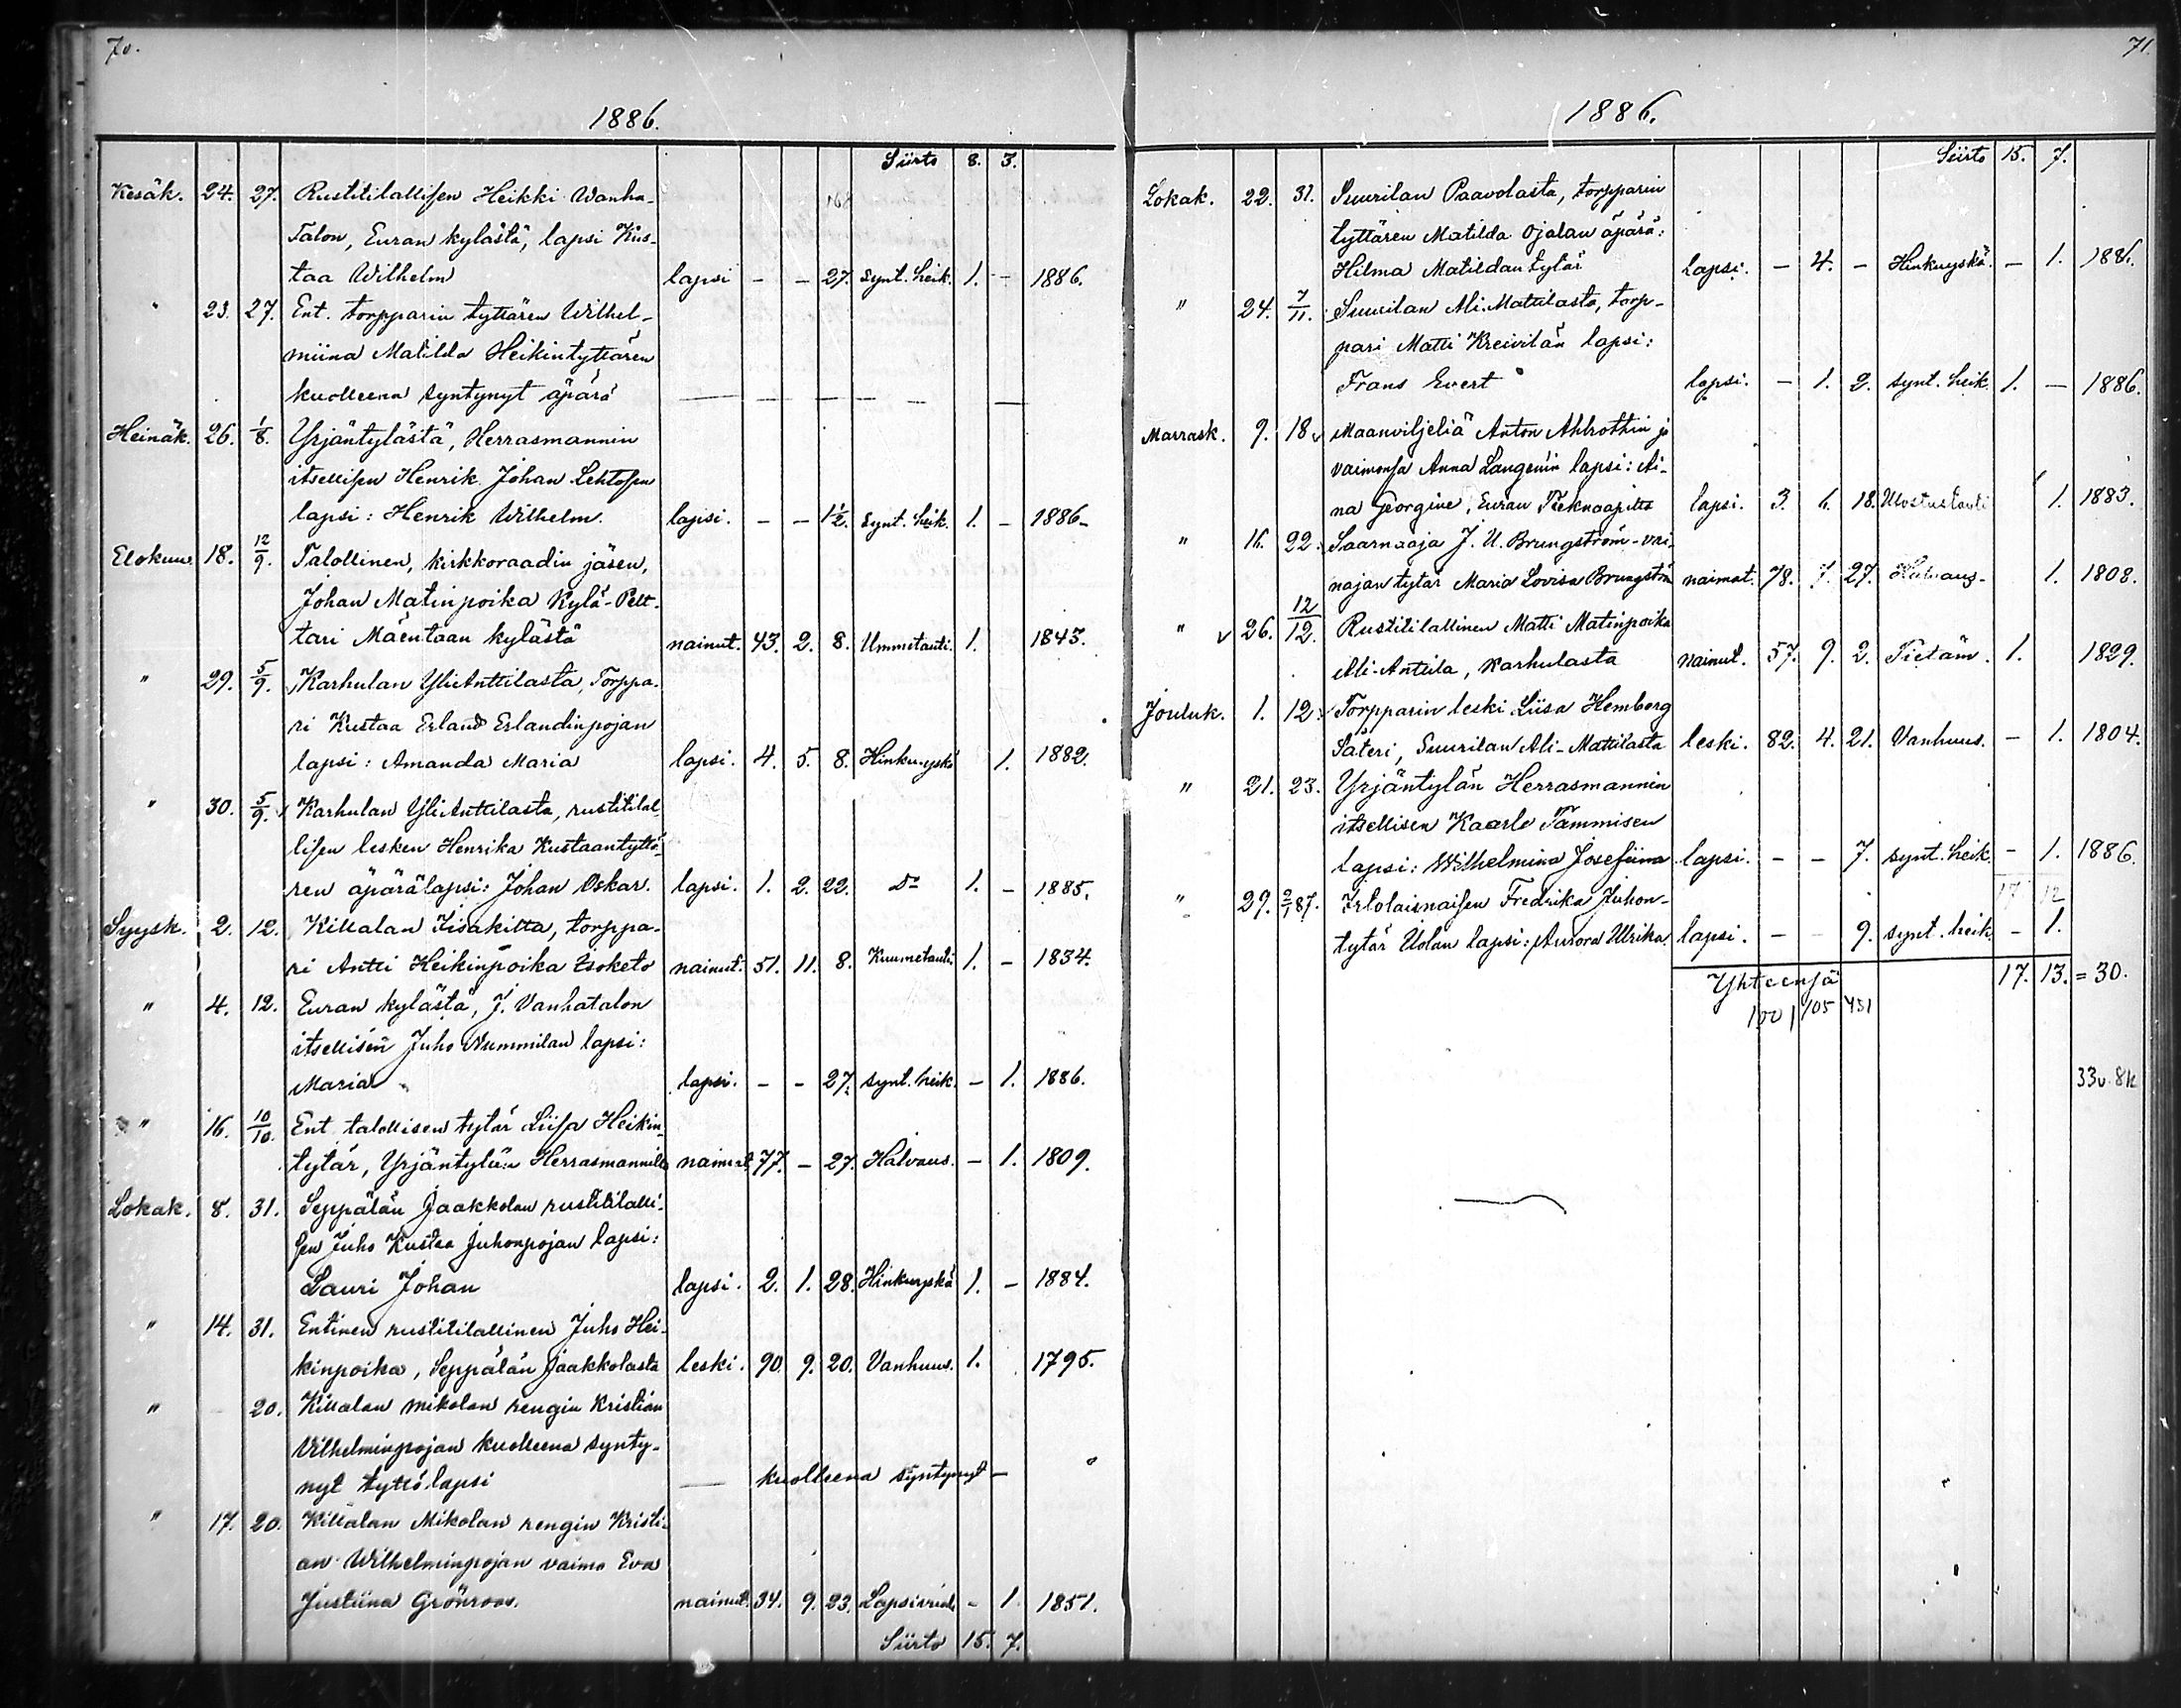 70.
1886.
Siirto 8. 3.
Kesäk. 24. 27. Rustitilallisen Heikki Wanha-
Talon, Euran kylästä, lapsi Kus-
taa Wilhelm lapsi - - 27. synt. heik. 1. - 1886.
" 23. 27. Ent. torpparin tyttären Wilhel-
miina Matilda Heikintyttären
kuolleena syntynyt äpärä — — — — — —
Heinäk. 26. 1/8. Yrjäntylästä, Herrasmannin
itsellisen Henrik Johan Lehtosen
lapsi: Henrik Wilhelm. lapsi. - - 1/2. synt. heik. 1. - 1886.
Elokuu. 18. 12/9. Talollinen, kirkkoraadin jäsen,
Johan Matinpoika Kylä-Pelt-
tari Mäentaan kylästä nainut. 43. 2. 8. Ummetauti. 1. 1843.
" 29. 5/9. Karhulan YliAnttilasta, Torppa-
ri Kustaa Erland Erlandinpojan
lapsi: Amanda Maria lapsi. 4. 5. 8. Hinkuyskä 1. 1882.
" 30. 5/9. Karhulan YliAnttilasta, rustitilal-
lisen lesken Henrika Kustaantyttä-
ren äpärälapsi: Johan Oskar. lapsi. 1. 2. 22. Do 1. - 1885.
Syysk. 2. 12. Killalan Iisakilta, torppa-
ri Antti Heikinpoika Isoketo nainut. 51. 11. 8. Kuumetauti 1. - 1834.
" 4. 12. Euran kylästä, J. Vanhatalon
itsellisen Juho Nummilan lapsi:
Maria lapsi. - - 27. synt. heik. - 1. 1886.
" 16. 10/10. Ent. talollisen tytär Liisa Heikin-
tytär, Yrjäntylän Herrasmannilta naimat. 77. - 27. Halvaus. - 1. 1809.
Lokak. 8. 31. Seppälän Jaakkolan rustitilalli-
sen Juho Kustaa Juhonpojan lapsi:
Lauri Johan lapsi. 2. 1. 28. Hinkuyskä 1. - 1884.
" 14. 31. Entinen rustitilallinen Juho Hei-
kinpoika, Seppälän Jaakkolasta leski. 90. 9. 20. Vanhuus. 1. 1795.
" 20. Killalan Mikolan rengin Kristian
Vilhelminpojan kuolleena synty-
nyt tyttölapsi — kuolleena syntynyt —
" 17. 20. Killalan Mikolan rengin Kristi-
an Wilhelminpojan vaimo Eva
Justiina Grönroos. nainut. 34. 9. 23. - 1. 1851.
Siirto 15. 7.
71.
1886.
Siirto 15. 7.
Lokak. 22. 31. Suurilan Paavolasta, torpparin
tyttären Matilda Ojalan äpärä:
Hilma Matildantytär lapsi. - 4. - Hinkuyskä. - 1. 1886.
" 24. 7/11. Suurilan Ali-Mattilasta, torp-
pari Matti Kreivilän lapsi:
Frans Evert lapsi. - 1. 2. synt. heik. 1. - 1886.
Marrask. 9. 18. Maanviljeliä Anton Ahlrothin ja
vaimonsa Anna Langenin lapsi: Ai-
na Georgine, Euran lapsi. 3. 6. 18. 1. 1883.
" 16. 22. Saarnaaja J. U. Brungström-vai-
najan tytär Maria Lovisa Brungström naimat. 78. 7. 27. Halvaus. 1. 1808.
" v 26. 12/12. Rustitilallinen Matti Matinpoika
Ali-Antila, Karhulasta nainut. 57. 9. 2. Tietäm. 1. 1829.
Jouluk. 1. 12. Torpparin leski Liisa Hemberg
Säteri, Suurilan Ali-Mattilasta leski. 82. 4. 21. Vanhuus. - 1. 1804.
" 21. 23. Yrjäntylän Herrasmannin
itsellisen Kaarle Tammisen
lapsi: Wilhelmina Josefiina lapsi. - - 7. synt. heik. - 1. 1886.
17 12
" 29. 2/1 87. Irtolaisnaisen Fredrika Juhon-
tytär Uolan lapsi: Aurora Ulrika lapsi. - - 9. synt. heik. - 1.
Yhteensä 17. 13. = 30.
105 451
33v. 8k